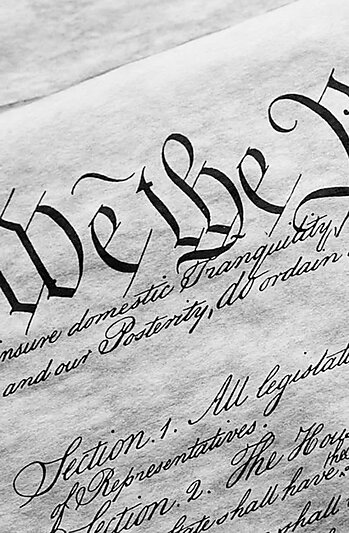 We the
insure domestic Tranquility,
and our Posterity, do ordain
Section. 1. All legislat
of Representatives.
Section. 2. The Hou
State shall have the
shall